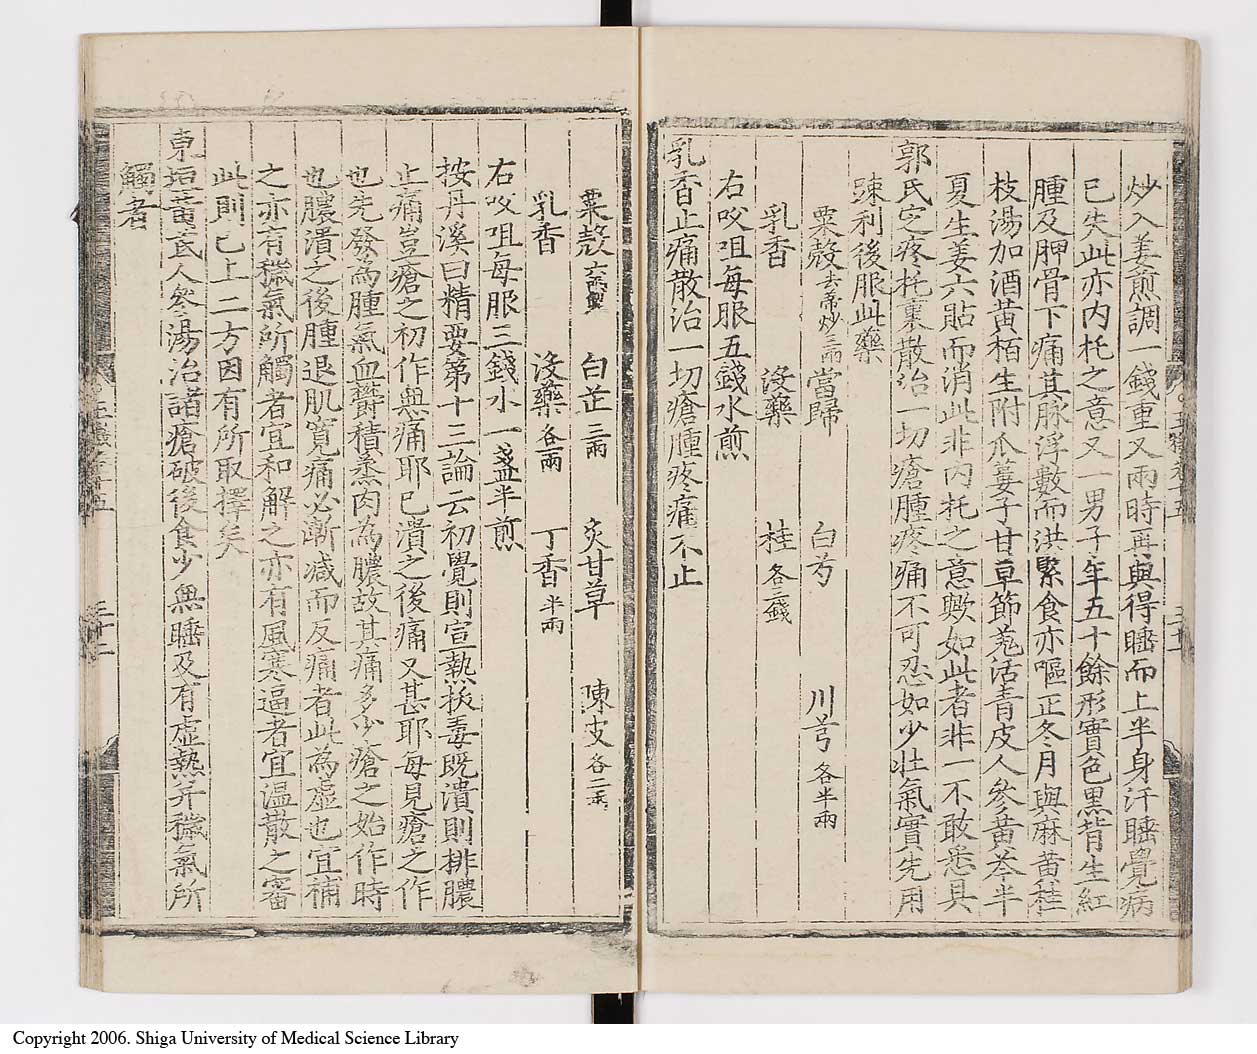 炒入姜煎調一錢重又兩時再與得睡而上半身汗睡覺病
已失此亦內托之意又一男子年五十餘形實色黑背生紅
腫及胛骨下痛其脉浮數而洪緊食亦嘔正冬月與麻黃桂
枝湯加酒黃栢生附瓜蔞子甘草節羗活青皮人參黃芩半
夏生姜六貼而消此非內托之意歟如此者非一不敢悉具
郭氏定疼托裏散治一切瘡腫疼痛不可忍如少壯氣實先用
踈利後服此藥
粟殻去蒂炒三兩 當歸 白芍 川芎各半兩
乳香 沒藥 桂各三錢
右㕮咀每服五錢水煎
乳香止痛散治一切瘡腫疼痛不止
粟殻 白芷三兩 炙甘草 陳皮各二兩
乳香 沒藥各一兩 丁香半兩
右㕮咀每服三錢水一盞半煎
按丹溪曰精要第十三論云初覺則宣熱拔毒既潰則排膿
止痛豈瘡之初作無痛耶已潰之後痛又甚耶每見瘡之作
也先發為腫氣血鬱積蒸肉為膿故其痛多少瘡之始作時
也膿潰之後腫退肌寬痛必漸减而反痛者此為虛也宜補
之亦有穢氣所觸者宜和解之亦有風寒逼者宜溫散之審
此則已上二方因有所取擇矣
東垣黃芪人參湯治諸瘡破後食少無睡及有虛熱并穢氣所
觸者
三十二
Copyright 2006. Shiga University of Medical Science Library